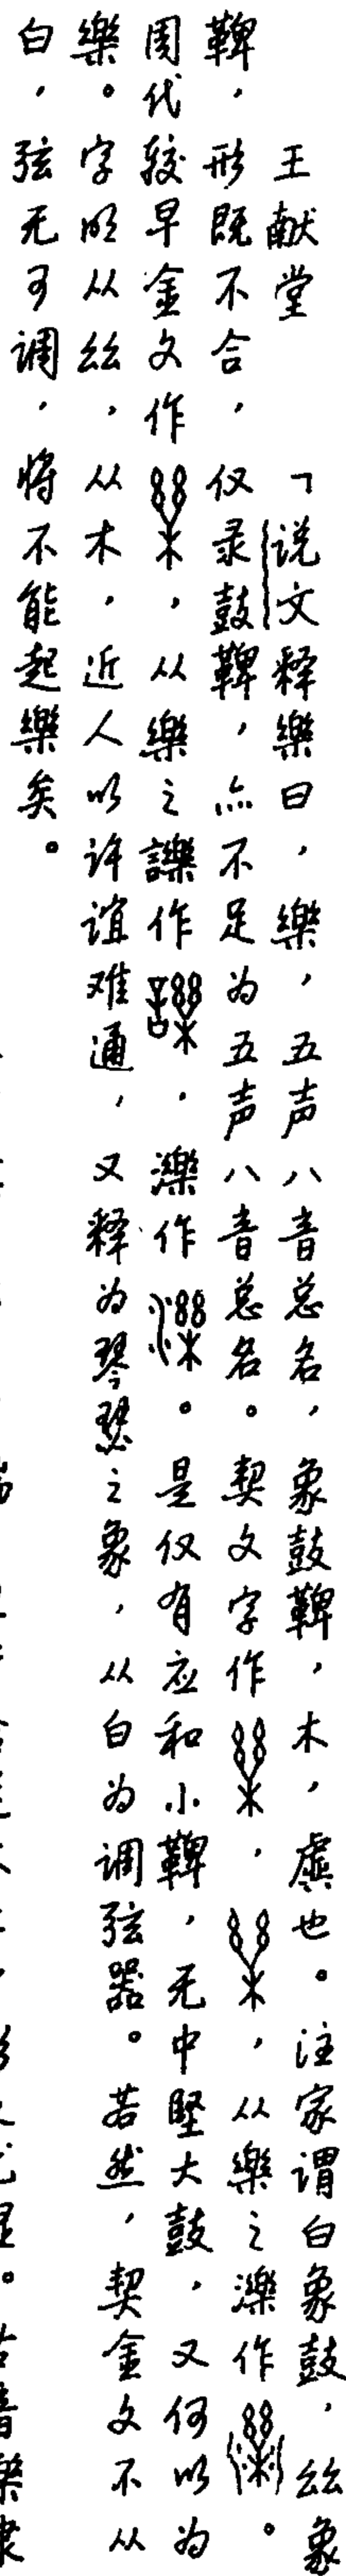 王献堂 「说文释樂曰，樂，五声八音总名，象鼓鞞，木，虡也。注家谓白象鼓，丝象
鞞，形既不合，仅录鼓鞞，亦不足为五声八音总名。契文字作，，从樂之濼作。
周代较早金文作，从樂之䜡作，濼作。是仅有应和小鞞，无中坚大鼓，又何以为
樂。字明从丝，从木，近人以许谊难通，又释为琴瑟之象，从白为调弦器。若然，契金文不从
白，弦无可调，将不能起樂矣。